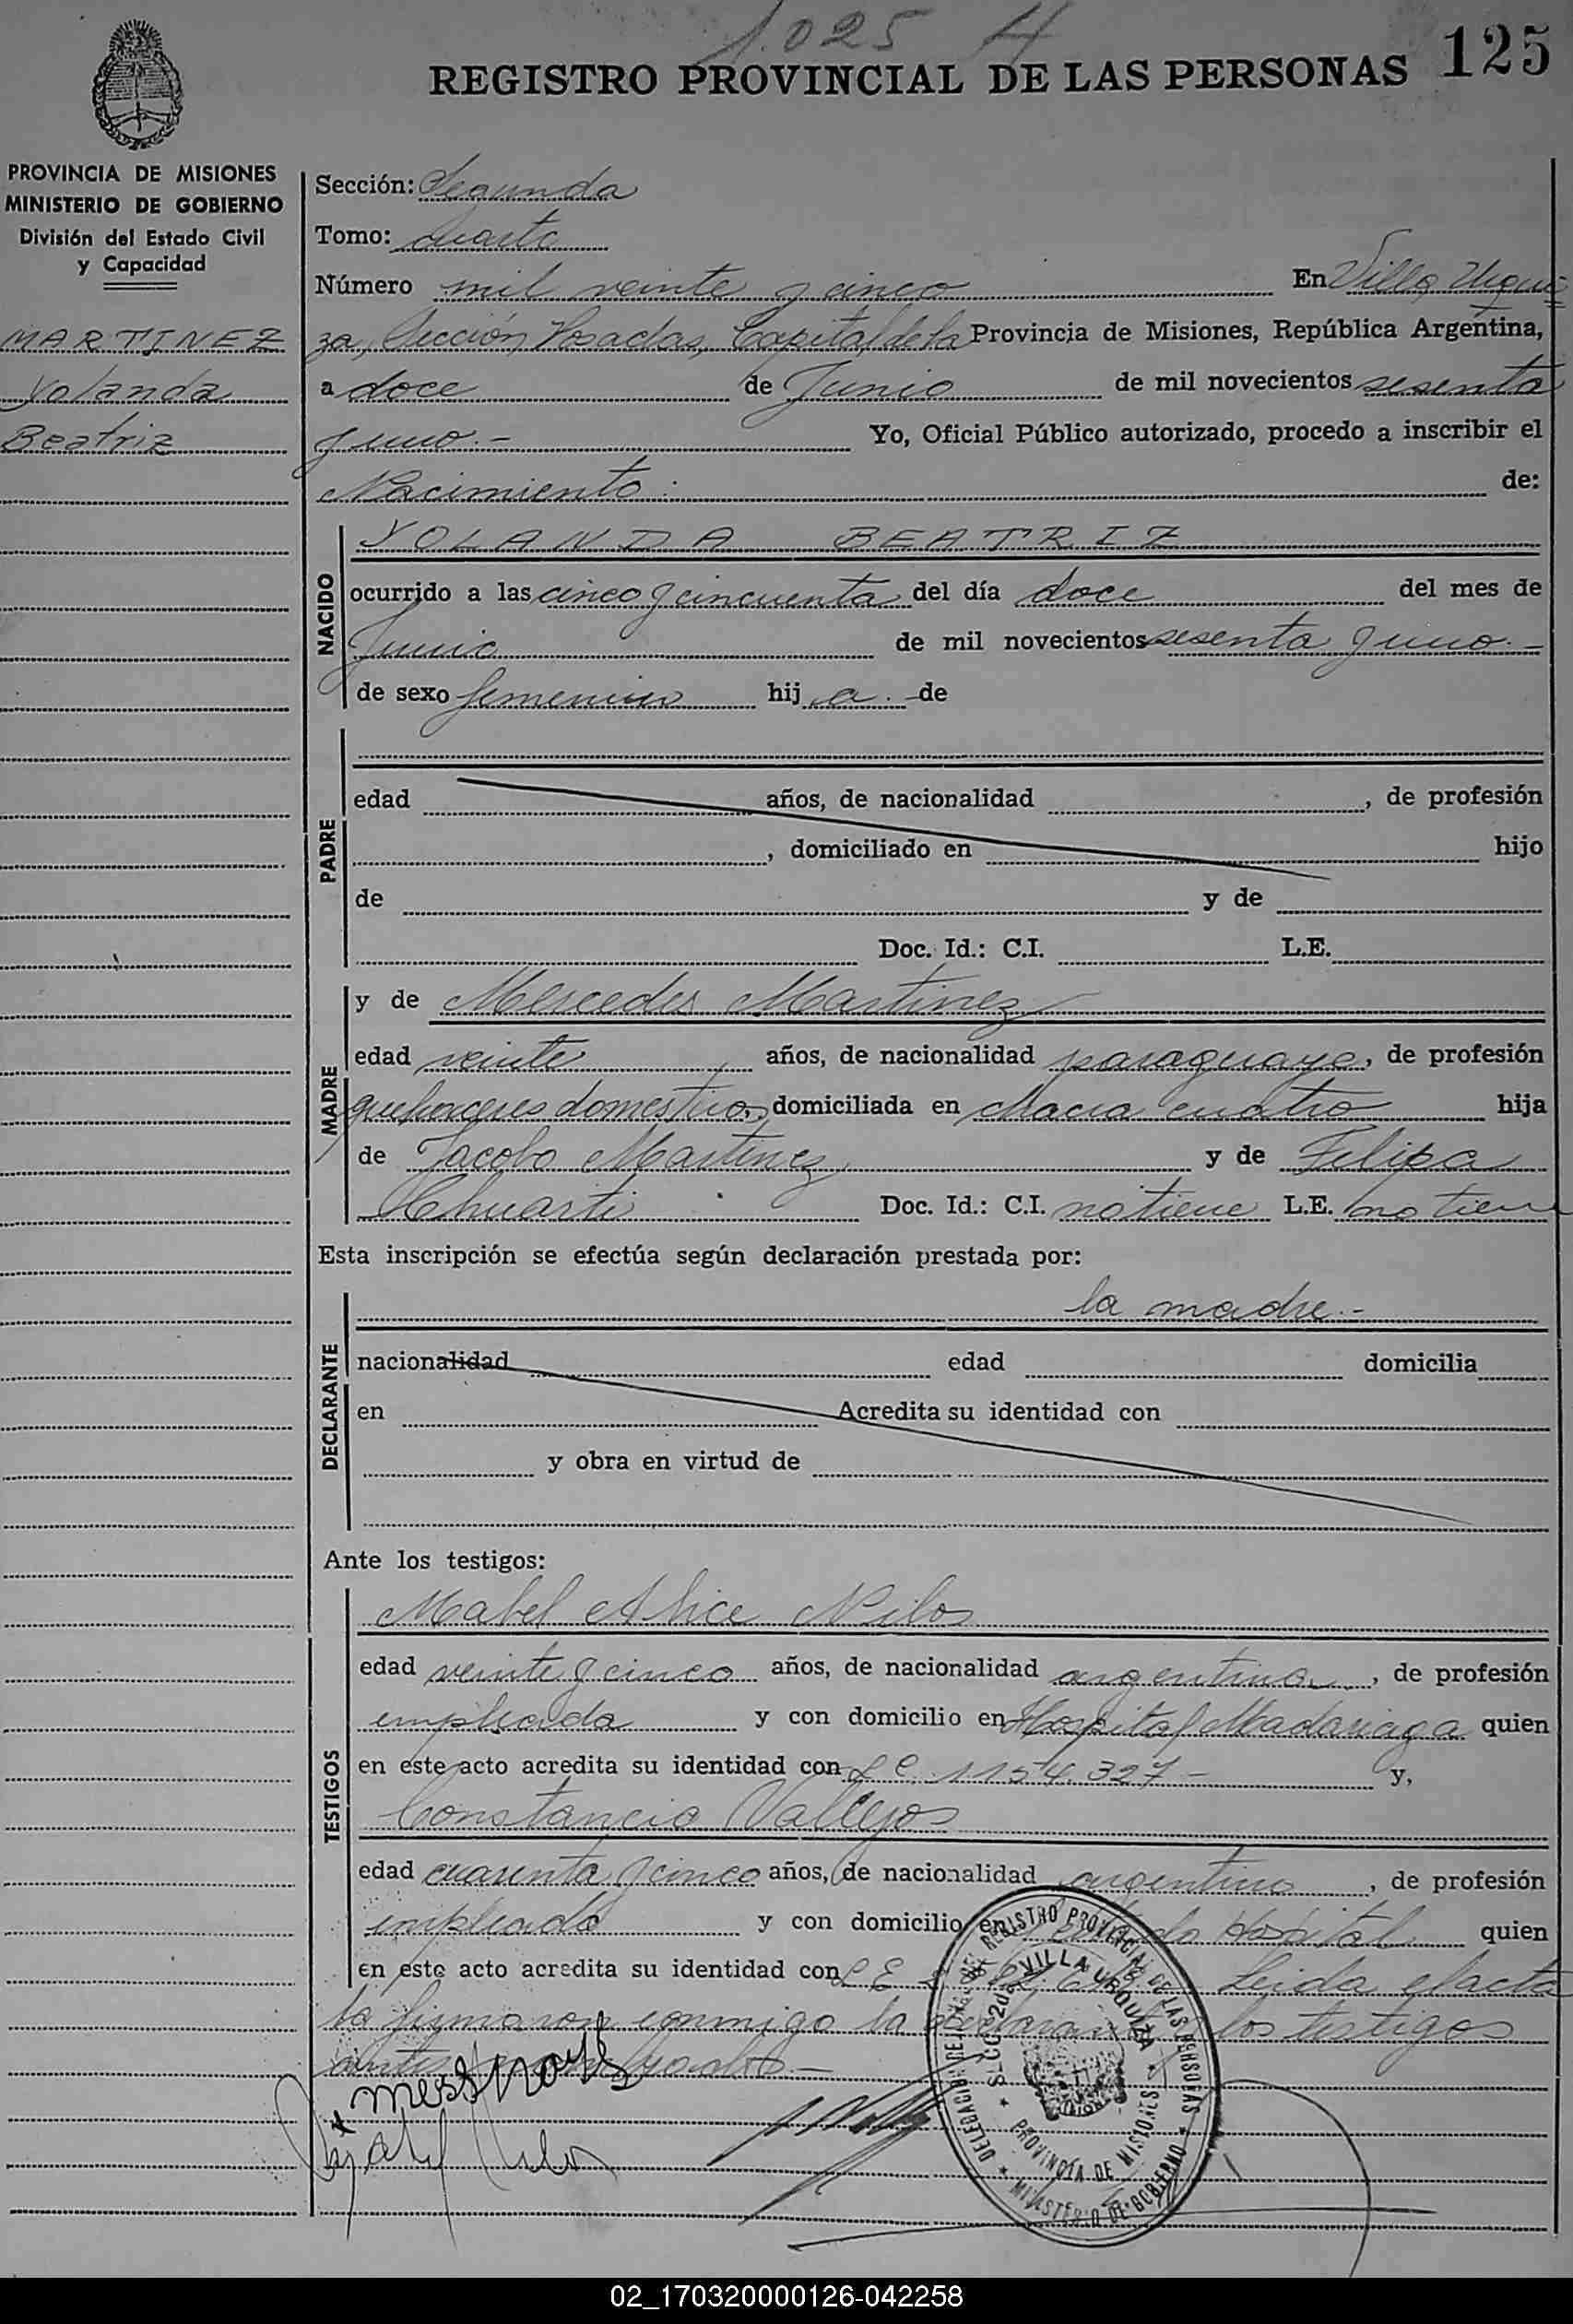 1.025 4
REGISTRO PROVINCIAL DE LAS PERSONAS 125
PROVINCIA DE MISIONES
MINISTERIO DE GOBIERNO
División del Estado Civil
y Capacidad
MARTINEZ
Yolanda
Beatriz
Sección: Segunda
Tomo: cuarto
Número mil veinte y cinco En Villa Urqui
za, Sección Posadas, Capital de la Provincia de Misiones, República Argentina,
a doce de Junio de mil novecientos sesenta
y uno.- Yo, Oficial Público autorizado, procedo a inscribir el
Nacimiento: de:
NACIDO
YOLANDA BEATRIZ
ocurrido a las cinco y cincuenta del día doce del mes de
Junio de mil novecientos sesenta y uno.-
de sexo femenino hija.- de
PADRE
edad años, de nacionalidad , de profesión
, domiciliado en hijo
de y de
Doc. Id.: C.I. L.E.
MADRE
y de Mercedes Martinez
edad veinte años, de nacionalidad paraguaya, de profesión
quehaceres domestico, domiciliada en Chacra cuatro hija
de Jacobo Martinez y de Felipa
Chuarti Doc. Id.: C.I. no tiene L.E. no tiene
Esta inscripción se efectúa según declaración prestada por:
DECLARANTE
la madre.-
nacionalidad edad domicilia
en Acredita su identidad con
y obra en virtud de
Ante los testigos:
TESTIGOS
Mabel Alice Nilos
edad veinte y cinco años, de nacionalidad argentina, de profesión
empleada y con domicilio en Hospital Madariaga quien
en este acto acredita su identidad con L C. 1154.327- y,
Constancio Vallejos
edad cuarenta y cinco años, de nacionalidad argentino, de profesión
empleado y con domicilio en Hospital quien
en este acto acredita su identidad con L E Leida el acta
la firmaron conmigo la declarante los testigos
DELEGACION DEL REGISTRO PROVINCIAL DE LAS PERSONAS
SECC. 2da. VILLA URQUIZA
PROVINCIA DE MISIONES
MINISTERIO DE GOBIERNO
02_170320000126-042258